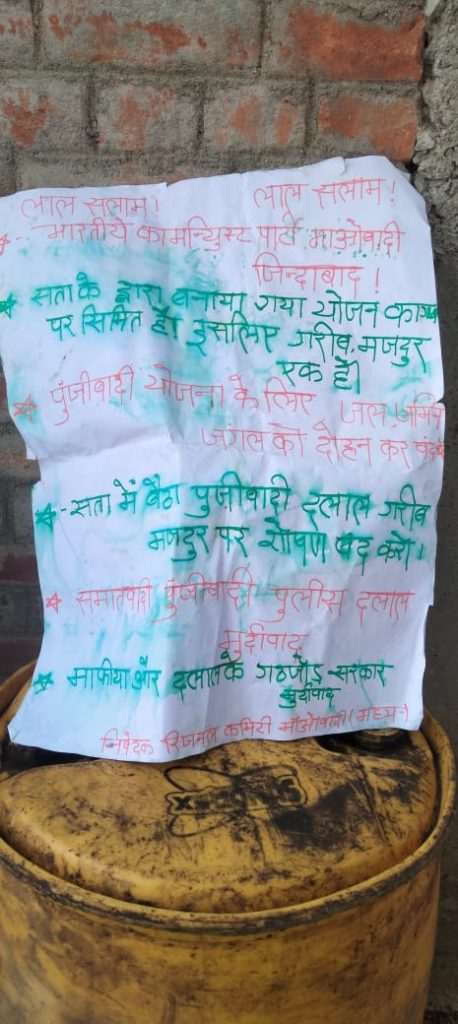 लाल सलाम! लाल सलाम!
भारतीये कामन्युिस्ट पार्टी माओवादी
जिन्दाबाद!
सता के द्वारा बनाया गया योजन कागज
पर सिमित है। इसलिए गरीब, मजदुर
एक हो।
पुंजीवादी योजना के लिए जल, जमिन
जंगल को दोहन कर
सता में बैठा पुजीवादी दलाल गरीब
मजदुर पर शोषण बंद करो।
पुंजीवादी पुलीस दलाल
मुर्दावाद
माफीया और दलाल के गठजोड़ सरकार
मुर्दावाद
निवेदक रिजनल कमिटी माओवादी (मध्य)